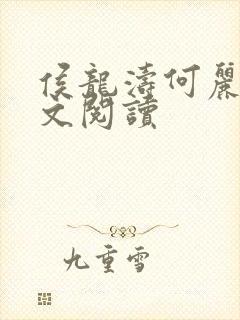 侯龍濤何麗
文閱讀
九重雪